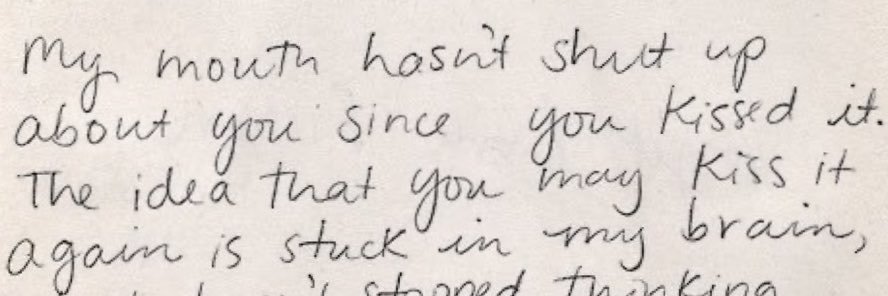 My mouth hasn't shut up
about you since you kissed it.
The idea that you may kiss it
again is stuck in my brain,
stopped thinking